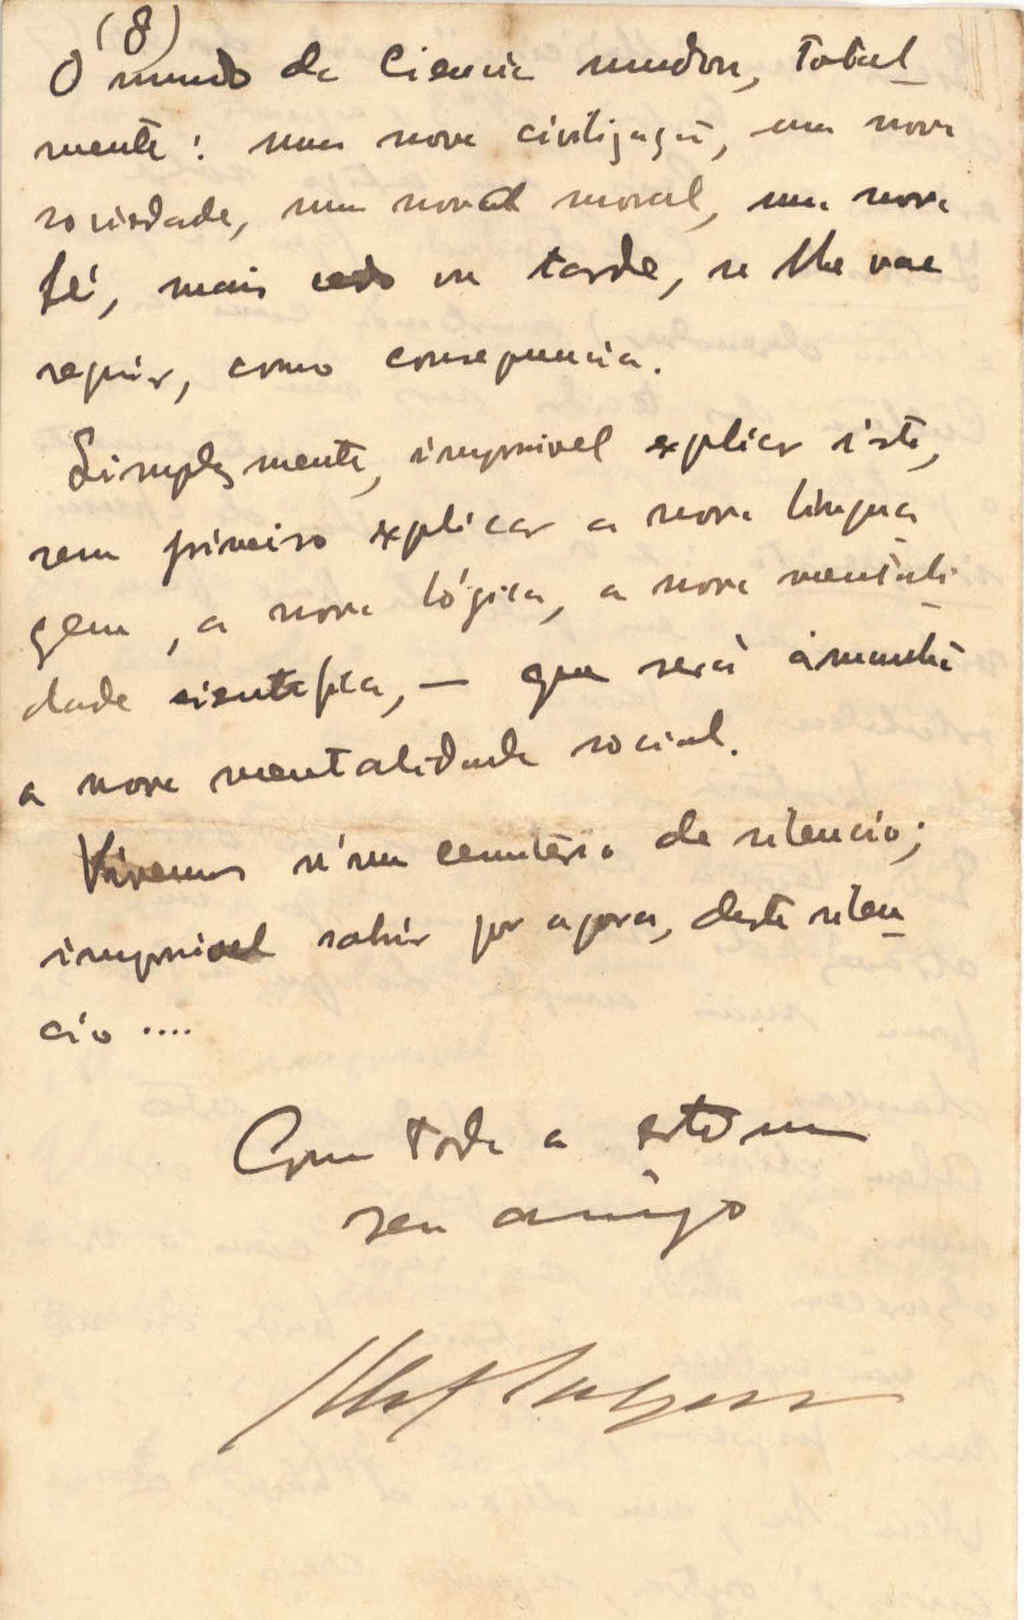 (8)
O mundo da Ciencia mudou, total
mente: uma nova civilização, uma nova
sociedade, uma nova moral, uma nova
fé, mais cedo ou tarde, se lhe vae
seguir, como consequencia.
Simplesmente, impossivel explicar isto,
sem primeiro explicar a nova lingua
gem, a nova lógica, a nova mentali
dade cientifica, — que será àmanhã
a nova mentalidade social.
Vivemos n'um cemitério de silencio;
impossivel sahir por agora, deste silen
cio ....
Com toda a estima
seu amigo